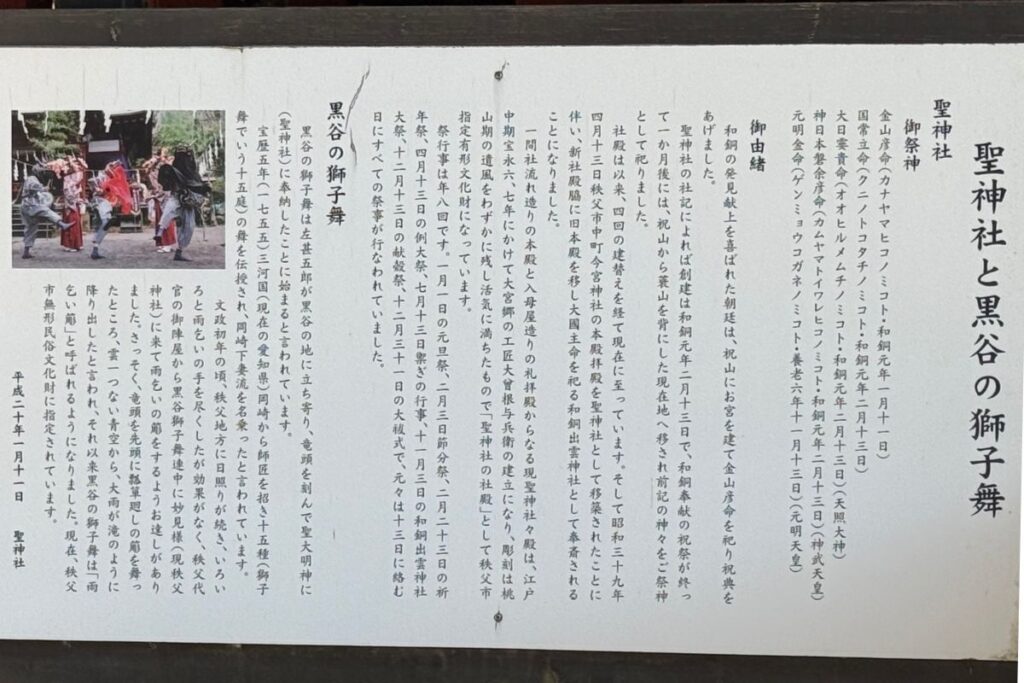 聖神社と黒谷の獅子舞
聖神社
御祭神
金山彦命(カナヤマヒコノミコト・和銅元年一月十一日)
国常立命(クニノトコタチノミコト・和銅元年二月十三日)
大日孁貴命(オオヒルメムチノミコト・和銅元年二月十三日)(天照大神)
神日本磐余彦命(カムヤマトイワレヒコノミコト・和銅元年二月十三日)(神武天皇)
元明金命(ゲンミョウコガネノミコト・養老六年十一月十三日)(元明天皇)
御由緒
和銅の発見献上を喜ばれた朝廷は、祝山にお宮を建て金山彦命を祀り祝典を
あげました。
聖神社の社記によれば創建は和銅元年二月十三日で、和銅奉献の祝祭が終っ
て一か月後には、祝山から蓑山を背にした現在地へ移され前記の神々をご祭神
として祀りました。
社殿は以来、四回の建替えを経て現在に至っています。そして昭和三十九年
四月十三日秩父市中町今宮神社の本殿拝殿を聖神社として移築されたことに
伴い、新社殿脇に旧本殿を移し大國主命を祀る和銅出雲神社として奉斎される
ことになりました。
一間社流れ造りの本殿と入母屋造りの礼拝殿からなる現聖神社々殿は、江戸
中期宝永六、七年にかけて大宮郷の工匠大曾根与兵衛の建立になり、彫刻は桃
山期の遺風をわずかに残し活気に満ちたもので「聖神社の社殿」として秩父市
指定有形文化財になっています。
祭行事は年八回です。一月一日の元旦祭、二月三日節分祭、二月二十三日の祈
年祭、四月十三日の例大祭、七月十三日禦ぎの行事、十一月三日の和銅出雲神社
大祭、十二月十三日の献穀祭、十二月三十一日の大祓式で、元々は十三日に絡む
日にすべての祭事が行なわれていました。
黒谷の獅子舞
黒谷の獅子舞は左甚五郎が黒谷の地に立ち寄り、竜頭を刻んで聖大明神に
(聖神社)に奉納したことに始まると言われています。
宝暦五年(一七五五)三河国(現在の愛知県)岡崎から師匠を招き十五種(獅子
舞でいう十五庭)の舞を伝授され、岡崎下妻流を名乗ったと言われています。
文政初年の頃、秩父地方に日照りが続き、いろい
ろと雨乞いの手を尽くしたが効果がなく、秩父代
官の御陣屋から黒谷獅子舞連中に妙見様(現秩父
神社)に来て雨乞いの簓をするようお達しがあり
ました。さっそく、竜頭を先頭に瓢箪廻しの簓を舞っ
たところ、雲一つない青空から、大雨が滝のように
降り出したと言われ、それ以来黒谷の獅子舞は「雨
乞い簓」と呼ばれるようになりました。現在、秩父
市無形民俗文化財に指定されています。
平成二十年一月十一日 聖神社